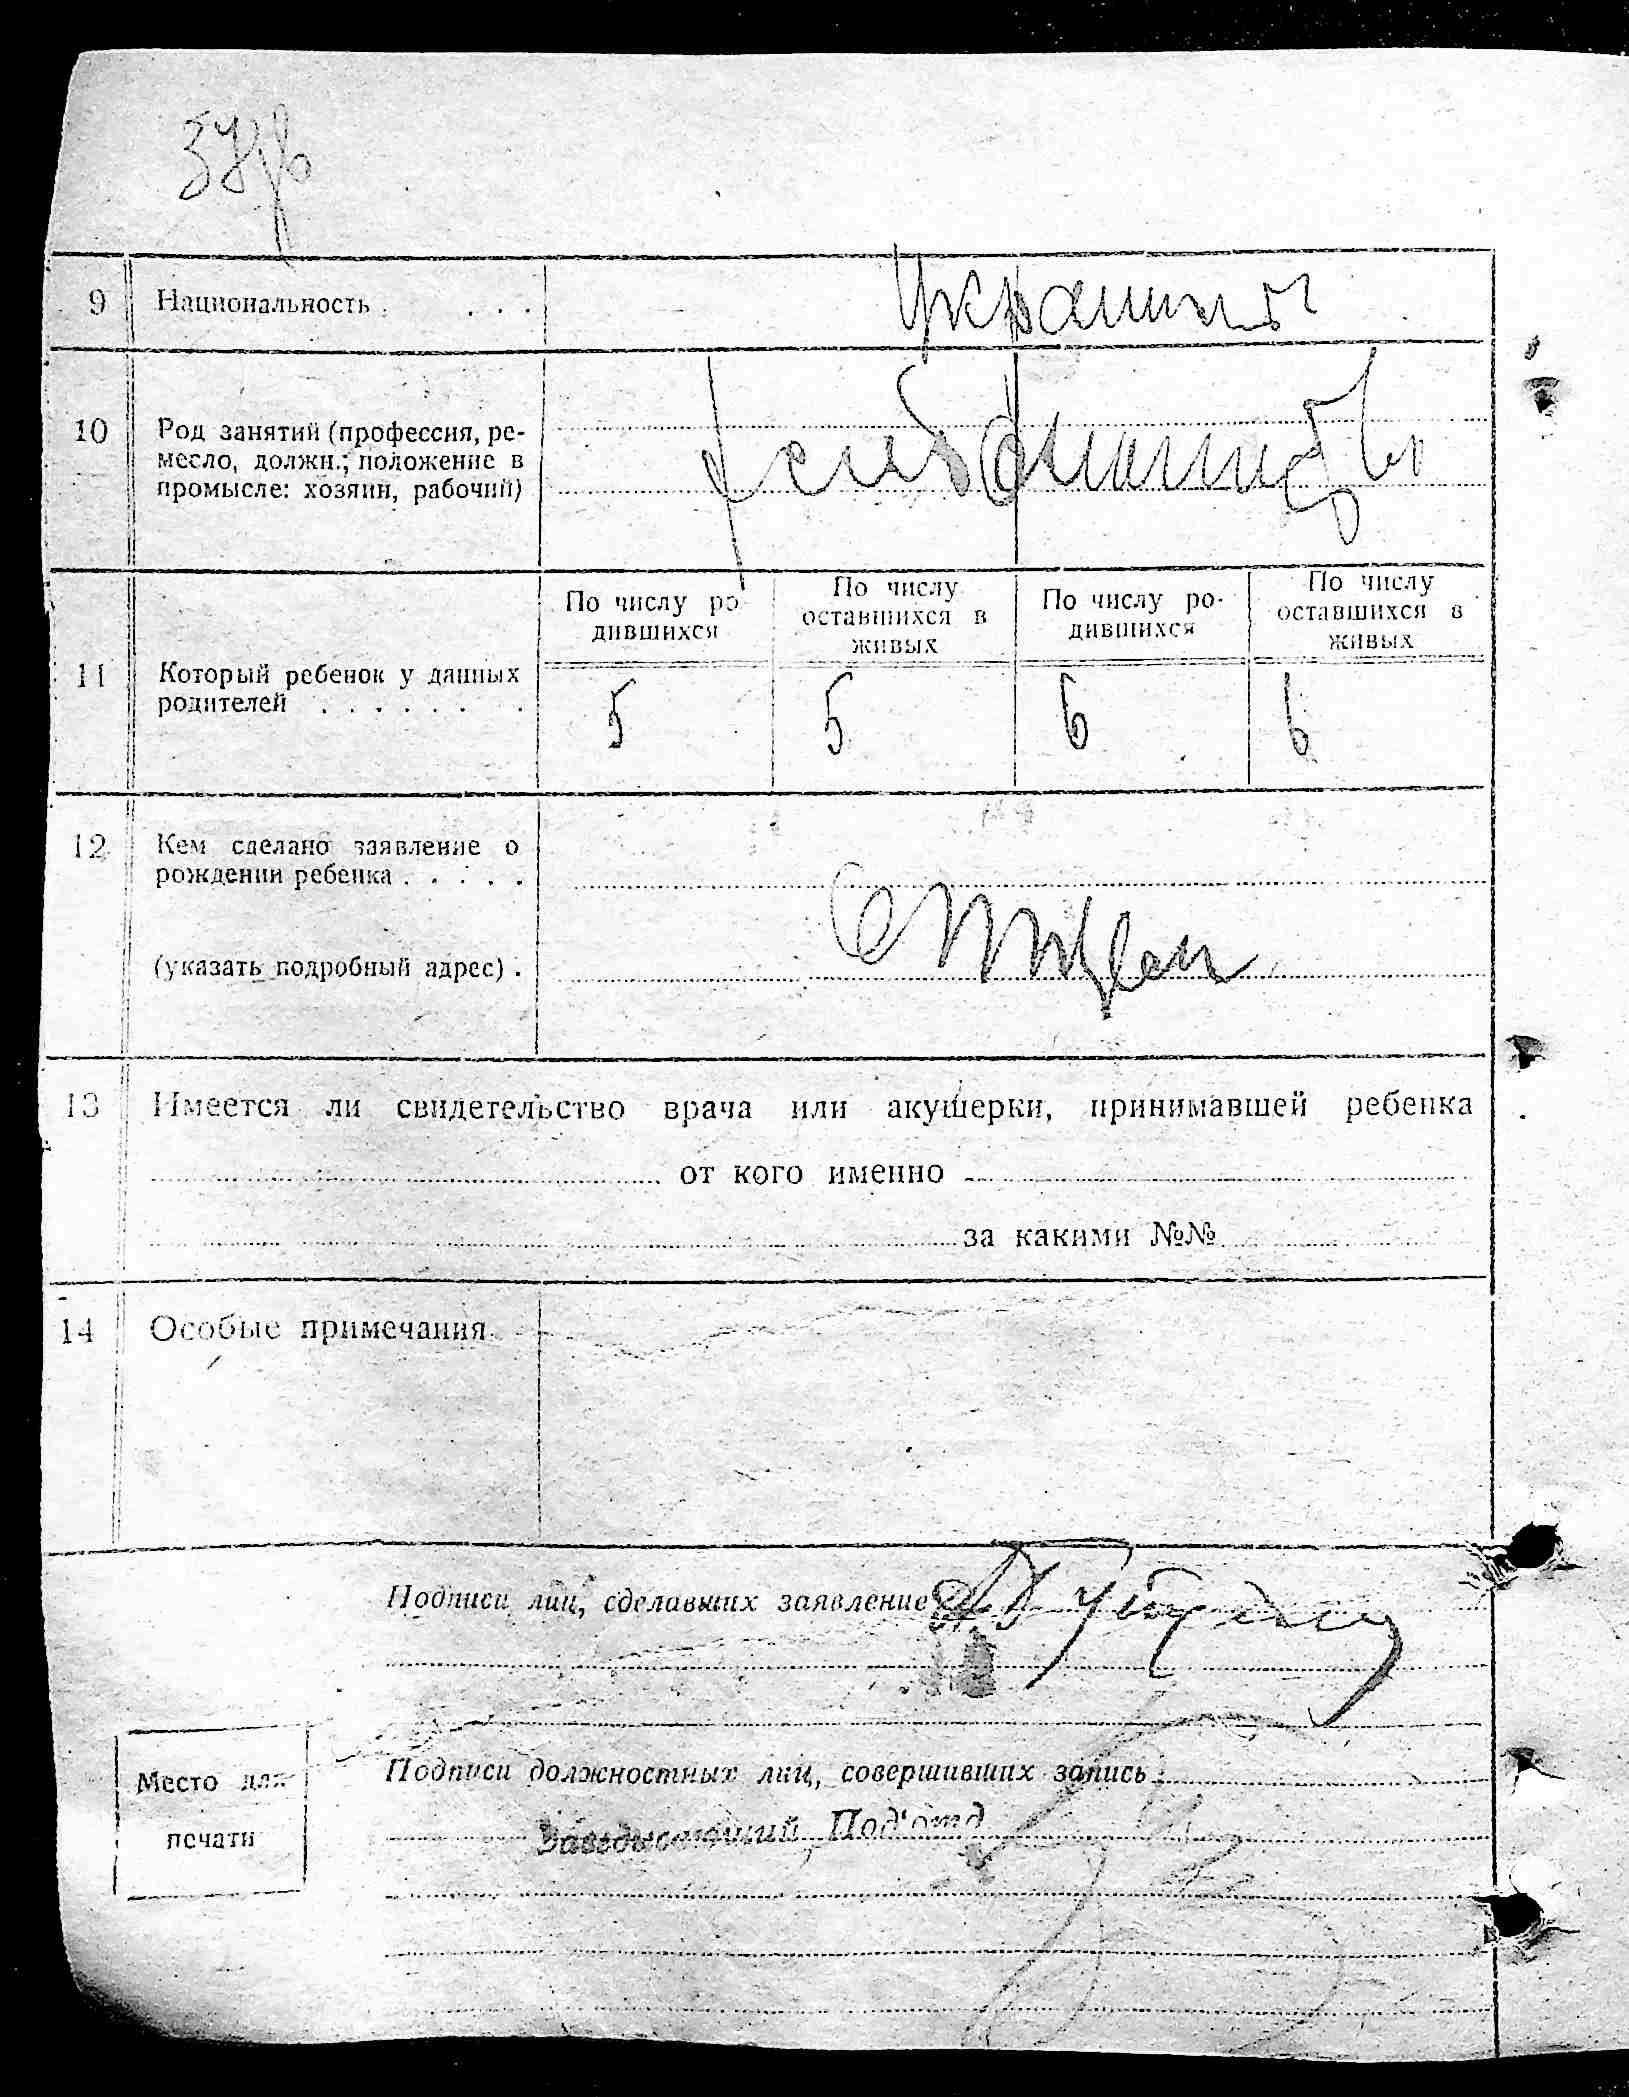 9 Национальность . . . . Украинцы
10 Род занятий (профессия, ре-
месло, должн.; положение в
промысле: хозяин, рабочий)
хлебопашцы
По числу ро-
дившихся
По числу
оставшихся в
живых
По числу ро-
дившихся
По числу
оставшихся в
живых
11 Который ребенок у данных
родителей . . . . . . .
5 5 6 6
12 Кем сделано заявление о
рождении ребенка . . . . .
(указать подробный адрес) .
Отцем
13 Имеется ли свидетельство врача или акушерки, принимавшей ребенка
от кого именно
за какими №№
14 Особые примечания
Подписи лиц, сделавших заявление
Подписи должностных лиц, совершивших запись:
Место для
печати
Заведывающий Под'отд